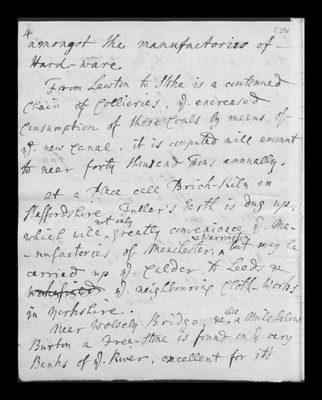 4
amongst the manufactories of
Hard-ware.
From Lawton to Stke is a contenued
Chain of Collieries, ye. encreased
Consumption of these Coals by means of
ye. new Canal, it is computed will amount
to near forty thousand Tons annually.
at a Place call Brick-Kiln in
Staffordshire Fuller's Earth is dug up,
not only
which will greatly convenience ye. Ma-
-nufactories of Manchester, but may be
carried up ye. Calder to Leeds &
Wakefield ye. neighbouring Cloth-Works
in Yorkshire.
also
Near Wolsely Bridge, &. a Mile below
Burton a Free-Stone is found on ye very
Banks of ye. River, excellent for its